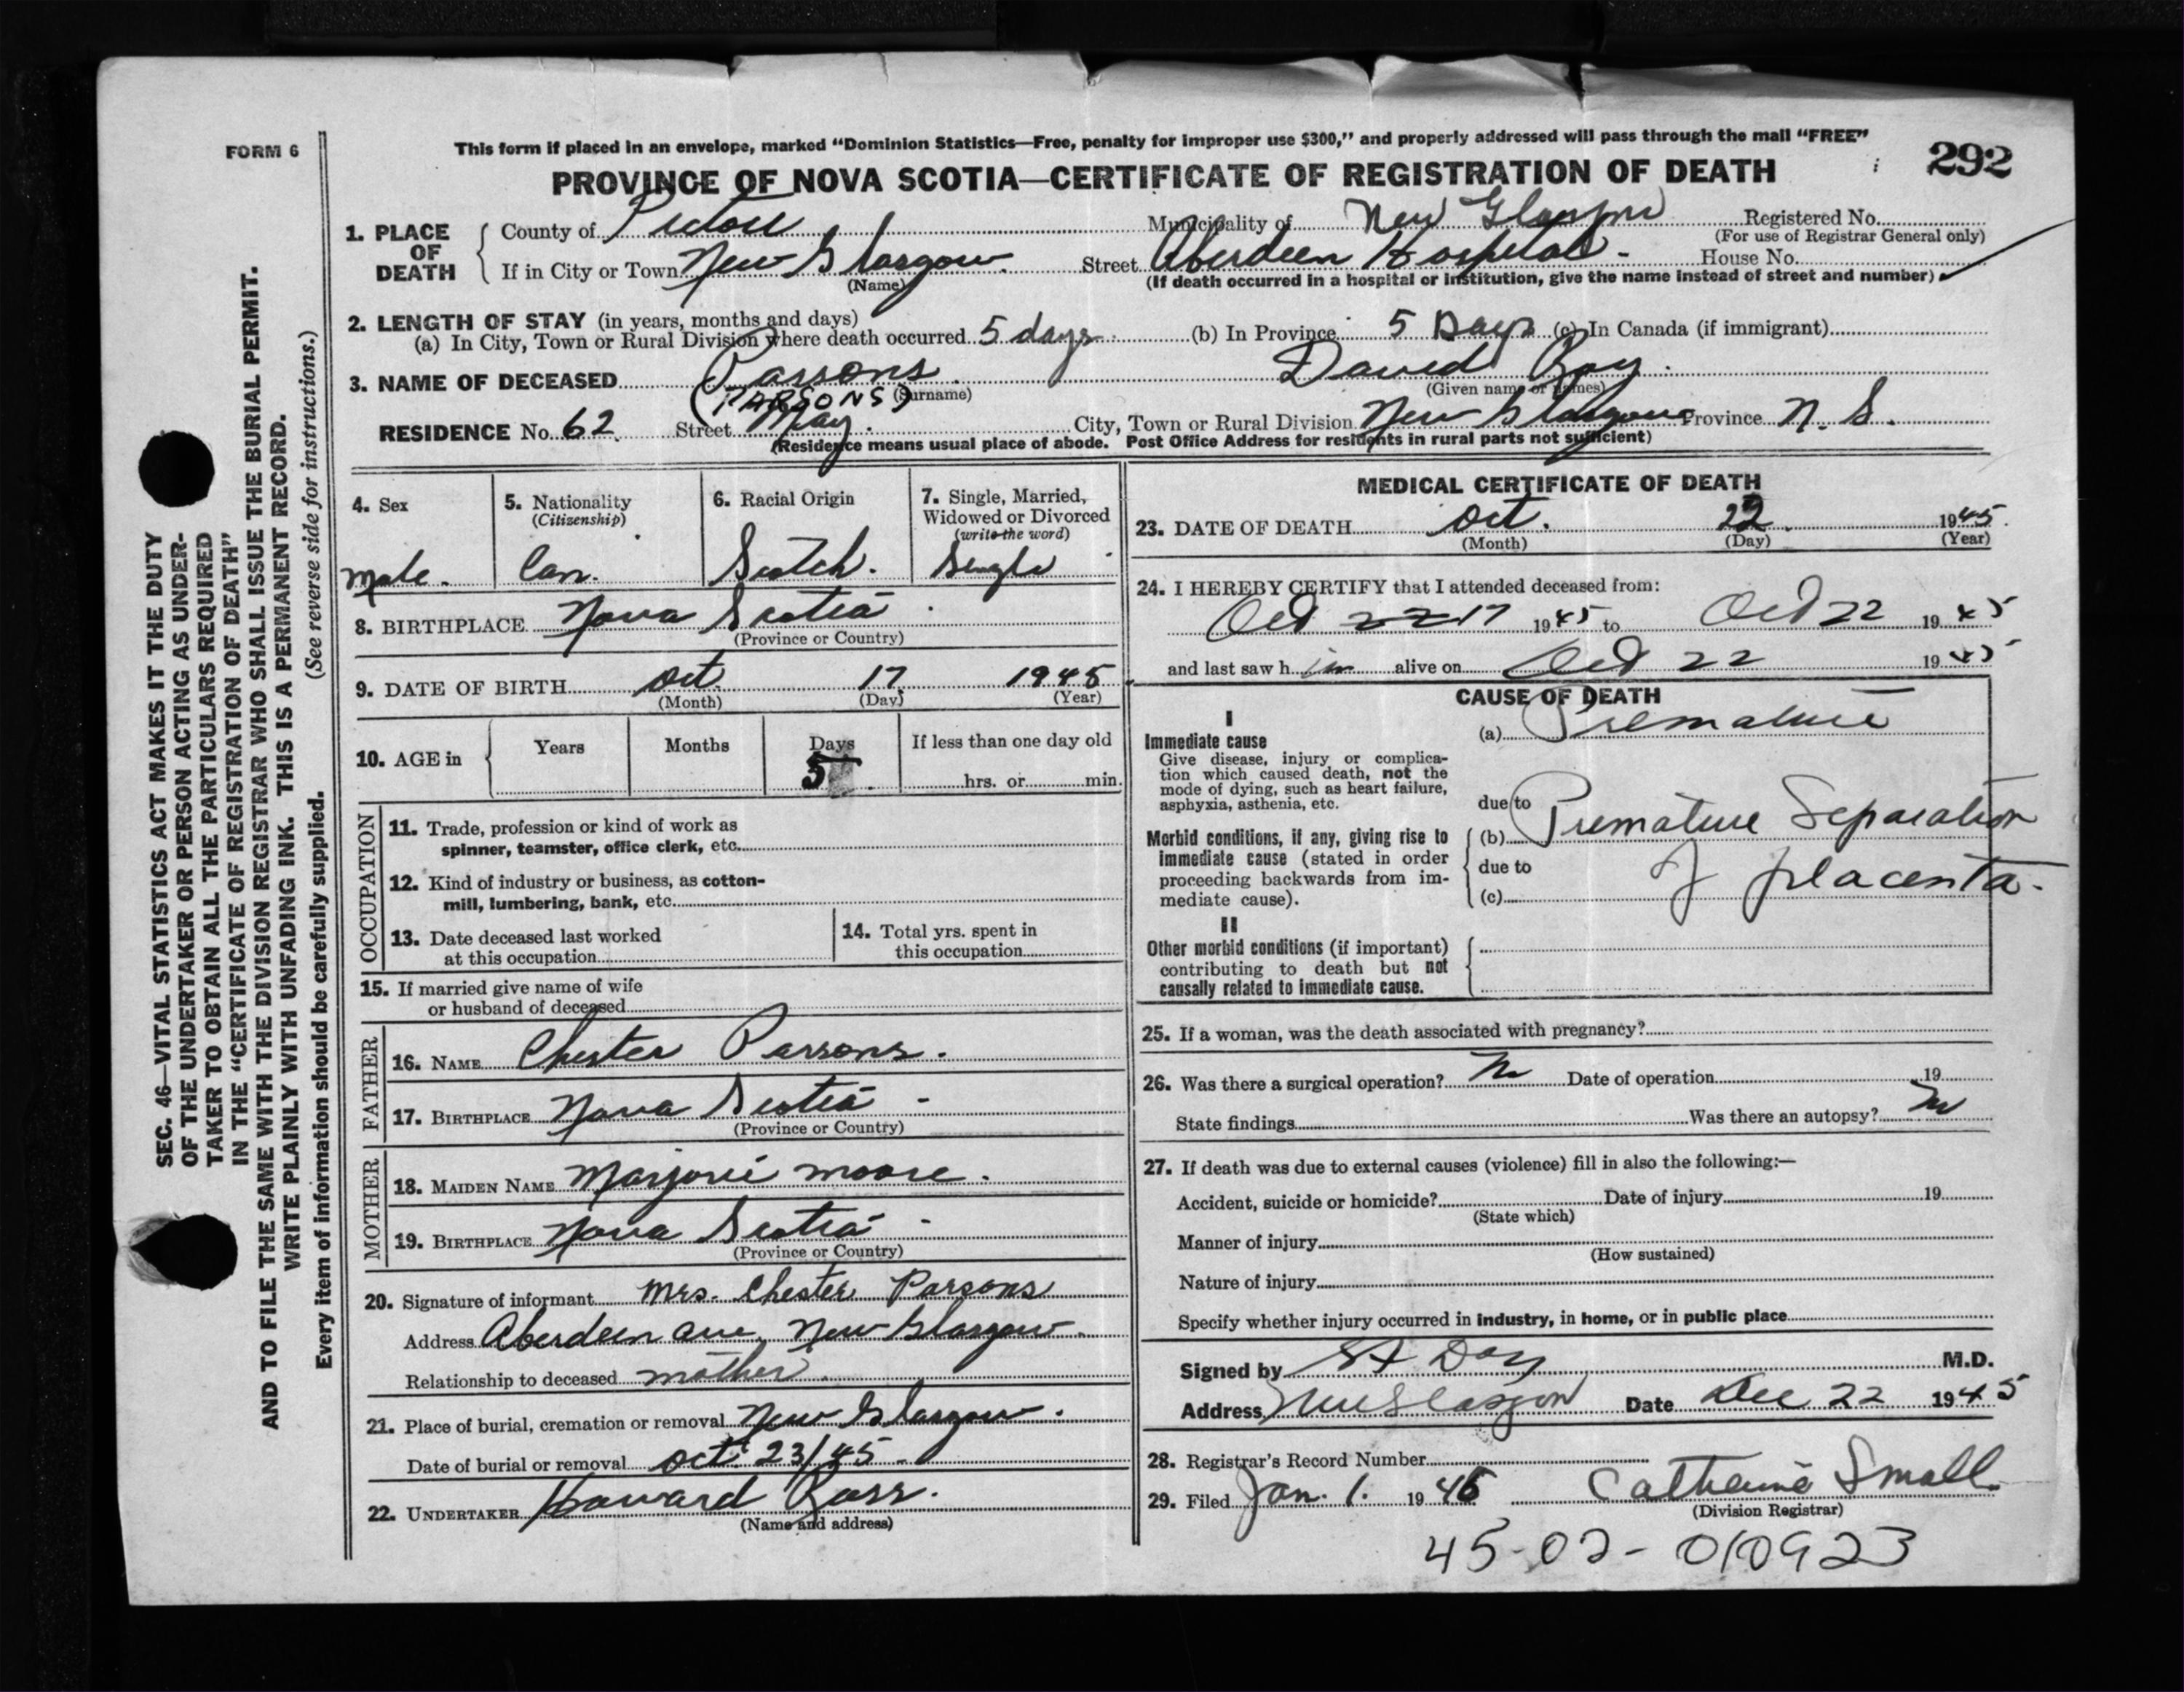 FORM 6
This form if placed in an envelope, marked "Dominion Statistics—Free, penalty for improper use $300," and properly addressed will pass through the mail "FREE"
PROVINCE OF NOVA SCOTIA—CERTIFICATE OF REGISTRATION OF DEATH
292
1. PLACE OF DEATH
County of Pictou Municipality of New Glasgow Registered No.
(For use of Registrar General only)
If in City or Town New Glasgow Street Aberdeen Hospital House No.
(Name) (If death occurred in a hospital or institution, give the name instead of street and number)
2. LENGTH OF STAY (in years, months and days)
(a) In City, Town or Rural Division where death occurred 5 days (b) In Province 5 Days (c) In Canada (if immigrant)
3. NAME OF DECEASED Parsons David Roy
(PARSONS) (Surname) (Given name or names)
RESIDENCE No. 62 Street May City, Town or Rural Division New Glasgow Province N. S.
(Residence means usual place of abode. Post Office Address for residents in rural parts not sufficient)
SEC. 46—VITAL STATISTICS ACT MAKES IT THE DUTY
OF THE UNDERTAKER OR PERSON ACTING AS UNDER-
TAKER TO OBTAIN ALL THE PARTICULARS REQUIRED
IN THE "CERTIFICATE OF REGISTRATION OF DEATH"
AND TO FILE THE SAME WITH THE DIVISION REGISTRAR WHO SHALL ISSUE THE BURIAL PERMIT.
WRITE PLAINLY WITH UNFADING INK. THIS IS A PERMANENT RECORD.
Every item of information should be carefully supplied. (See reverse side for instructions.)
4. Sex
Male.
5. Nationality
(Citizenship)
Can.
6. Racial Origin
Scotch.
7. Single, Married,
Widowed or Divorced
(write the word)
Single
8. BIRTHPLACE Nova Scotia
(Province or Country)
9. DATE OF BIRTH Oct. 17 1945
(Month) (Day) (Year)
10. AGE in
Years Months Days If less than one day old
5 hrs. or min.
OCCUPATION
11. Trade, profession or kind of work as
spinner, teamster, office clerk, etc.
12. Kind of industry or business, as cotton-
mill, lumbering, bank, etc.
13. Date deceased last worked
at this occupation
14. Total yrs. spent in
this occupation
15. If married give name of wife
or husband of deceased
FATHER
16. NAME Chester Parsons.
17. BIRTHPLACE Nova Scotia
(Province or Country)
MOTHER
18. MAIDEN NAME Marjorie Moore.
19. BIRTHPLACE Nova Scotia
(Province or Country)
20. Signature of informant Mrs. Chester Parsons
Address Aberdeen Ave, New Glasgow.
Relationship to deceased mother.
21. Place of burial, cremation or removal New Glasgow.
Date of burial or removal Oct 23/45
22. UNDERTAKER Howard Ross.
(Name and address)
MEDICAL CERTIFICATE OF DEATH
23. DATE OF DEATH Oct. 22 1945
(Month) (Day) (Year)
24. I HEREBY CERTIFY that I attended deceased from:
Oct 22 17 1945 to Oct 22 1945
and last saw him alive on Oct 22 1945
CAUSE OF DEATH
I
Immediate cause
Give disease, injury or complica-
tion which caused death, not the
mode of dying, such as heart failure,
asphyxia, asthenia, etc.
(a) Premature
due to
Morbid conditions, if any, giving rise to
immediate cause (stated in order
proceeding backwards from im-
mediate cause).
(b) Premature Separation
due to of placenta.
(c)
II
Other morbid conditions (if important)
contributing to death but not
causally related to immediate cause.
25. If a woman, was the death associated with pregnancy?
26. Was there a surgical operation? No Date of operation 19
State findings Was there an autopsy? No
27. If death was due to external causes (violence) fill in also the following:—
Accident, suicide or homicide? Date of injury 19
(State which)
Manner of injury
(How sustained)
Nature of injury
Specify whether injury occurred in industry, in home, or in public place
Signed by Day M.D.
Address New Glasgow Date Dec 22 1945
28. Registrar's Record Number
29. Filed Jan. 1. 1946 Catherine Small
(Division Registrar)
45-02-010923